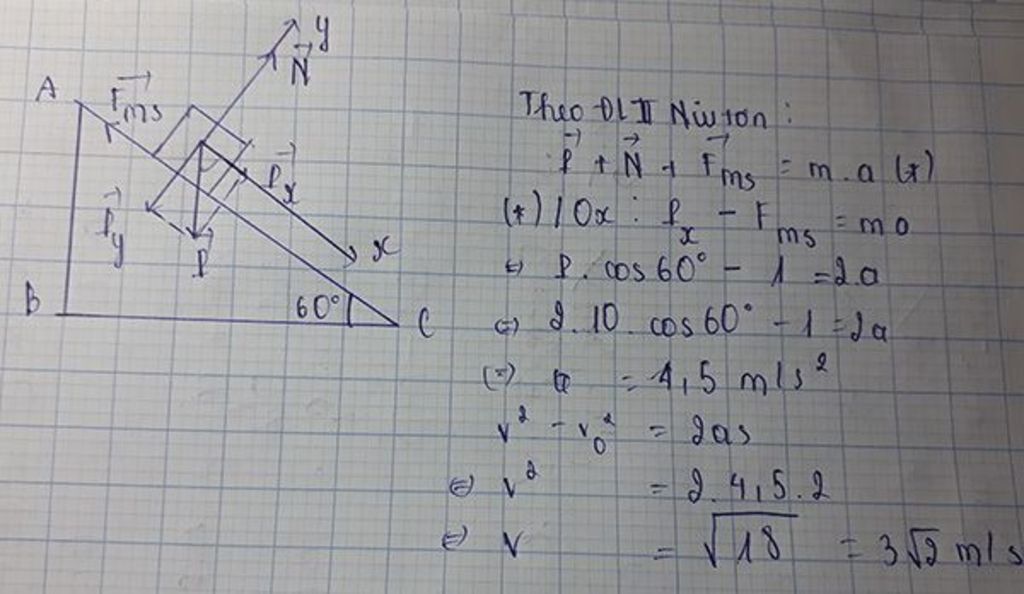 y
N⃗
A
F⃗ms
P⃗x
P⃗y
P⃗
x
B
60°
C
Theo ĐL II Niuton :
P⃗ + N⃗ + F⃗ms = m.a (*)
(*) / Ox : Px - Fms = ma
⇔ P. cos 60° - 1 = 2.a
⇔ 2.10. cos 60° - 1 = 2a
⇔ a = 4,5 m/s²
v² - v₀² = 2as
⇔ v² = 2.4,5.2
⇔ v = √18 = 3√2 m/s